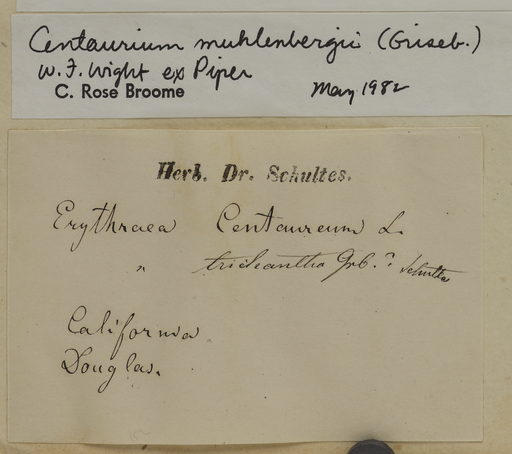 Centaurium muhlenbergii (Griseb.)
W. F. Wight ex Piper
C. Rose Broome May 1982
Herb. Dr. Schultes.
Erythraea Centaureum L.
" tricantha Grb. ? Schultes
California
Douglas.